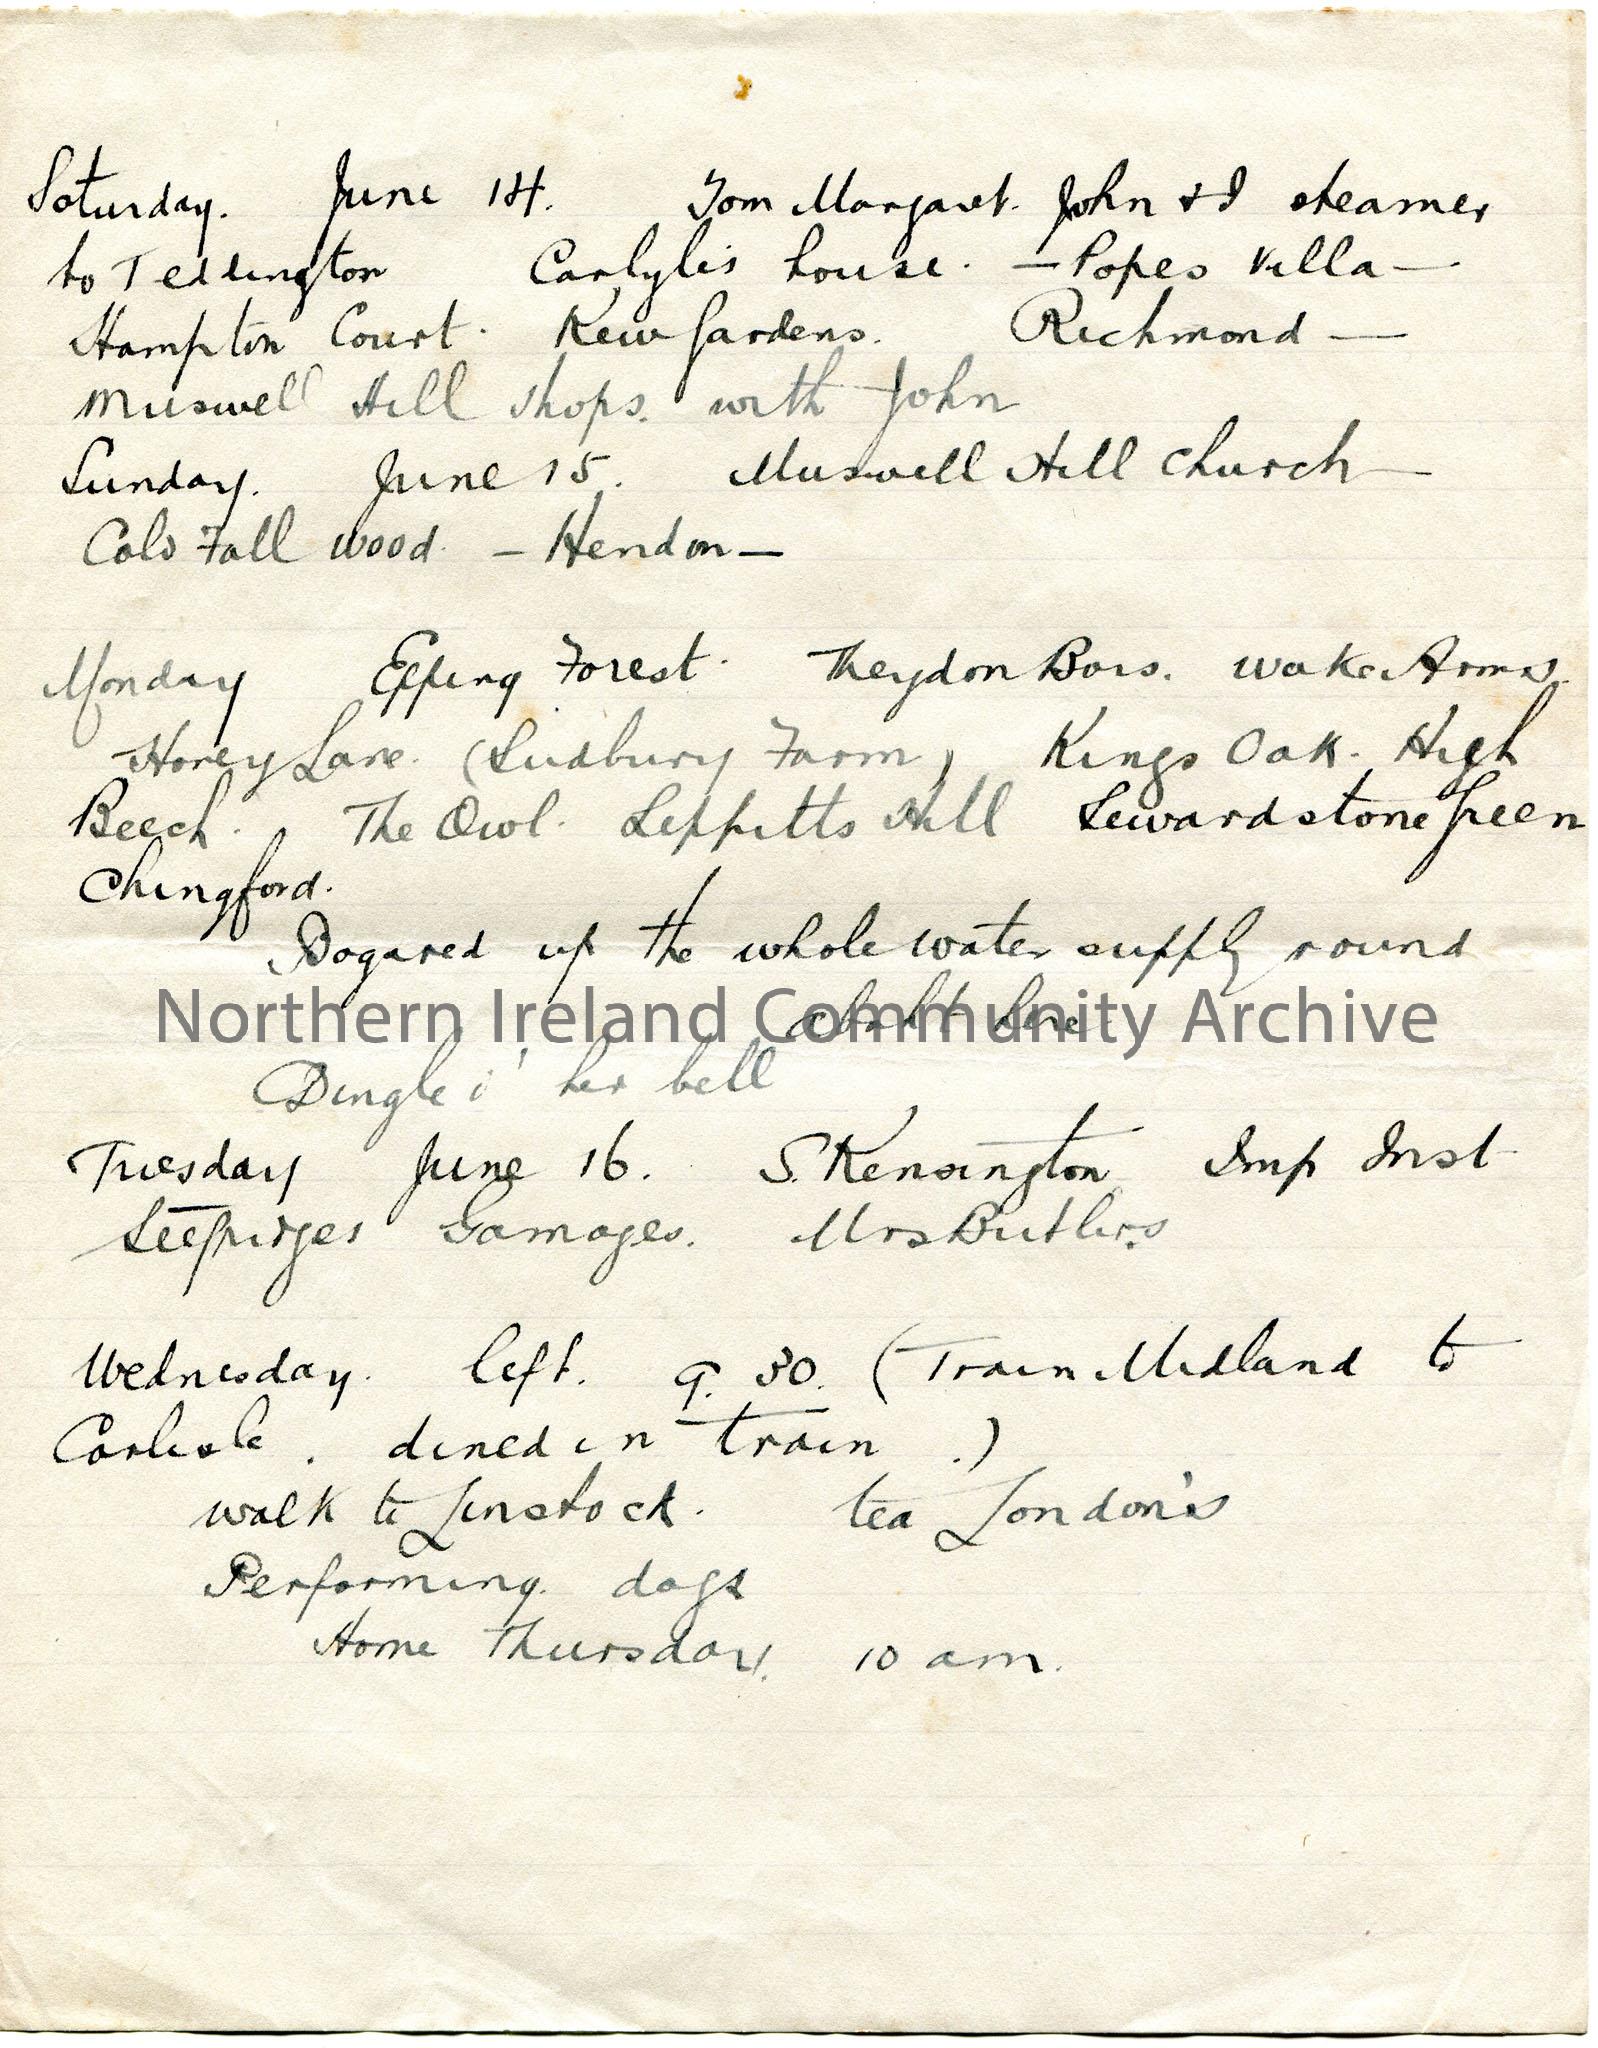 Saturday. June 14. Tom Margaret. John & I steamer
to Teddington Carlyle's house. — Popes Villa —
Hampton Court. Kew Gardens. Richmond —
Muswell Hill shops. with John
Sunday. June 15. Muswell Hill Church —
Cold Fall wood. — Hendon —
Monday Epping Forest. Theydon Bois. Wake Arms.
Honey Lane. (Sudbury Farm) Kings Oak. High
Beech. The Owl. Lippitts Hill Sewardstone Green
Chingford.
up the whole water supply round
about here
Northern Ireland Community Archive
Dingle i' her bell
Tuesday June 16. S. Kensington Imp Inst
Gamages. Mrs Butlers
Wednesday. left. 9.30. (Train Midland to
Carlisle. dined in train.)
walk to Linstock. tea London's
Performing dogs
Home Thursday. 10 am.